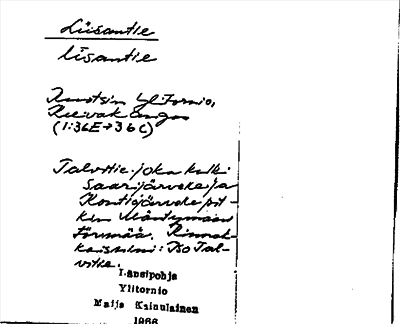 Liisantie
liisantie
Ruotsin Yli-Tornio,
(1:36E→36C)
Talvitie joka kulki
Saarijärveke ja
Kontiojärveke pit-
kin Mäntymaan
Törmää. Rinnak-
kaisnimi: Iso Tal-
vitie.
Länsipohja
Ylitornio
Maija Kainulainen
1966